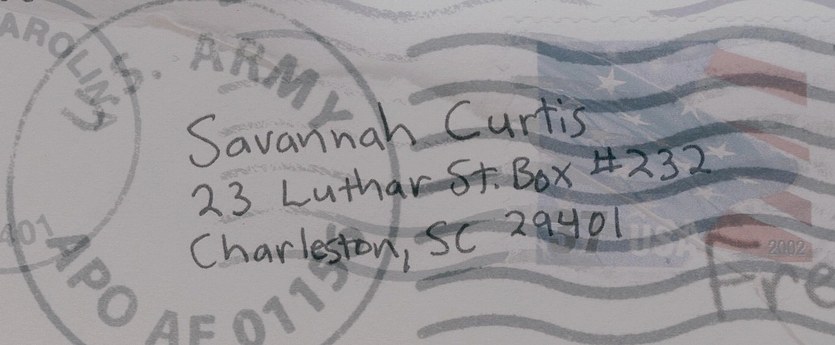 AROLINA
S. ARMY
Savannah Curtis
23 Luthar St. Box #232
Charleston, SC 29401
401
APO AE
USA
2002
Fre